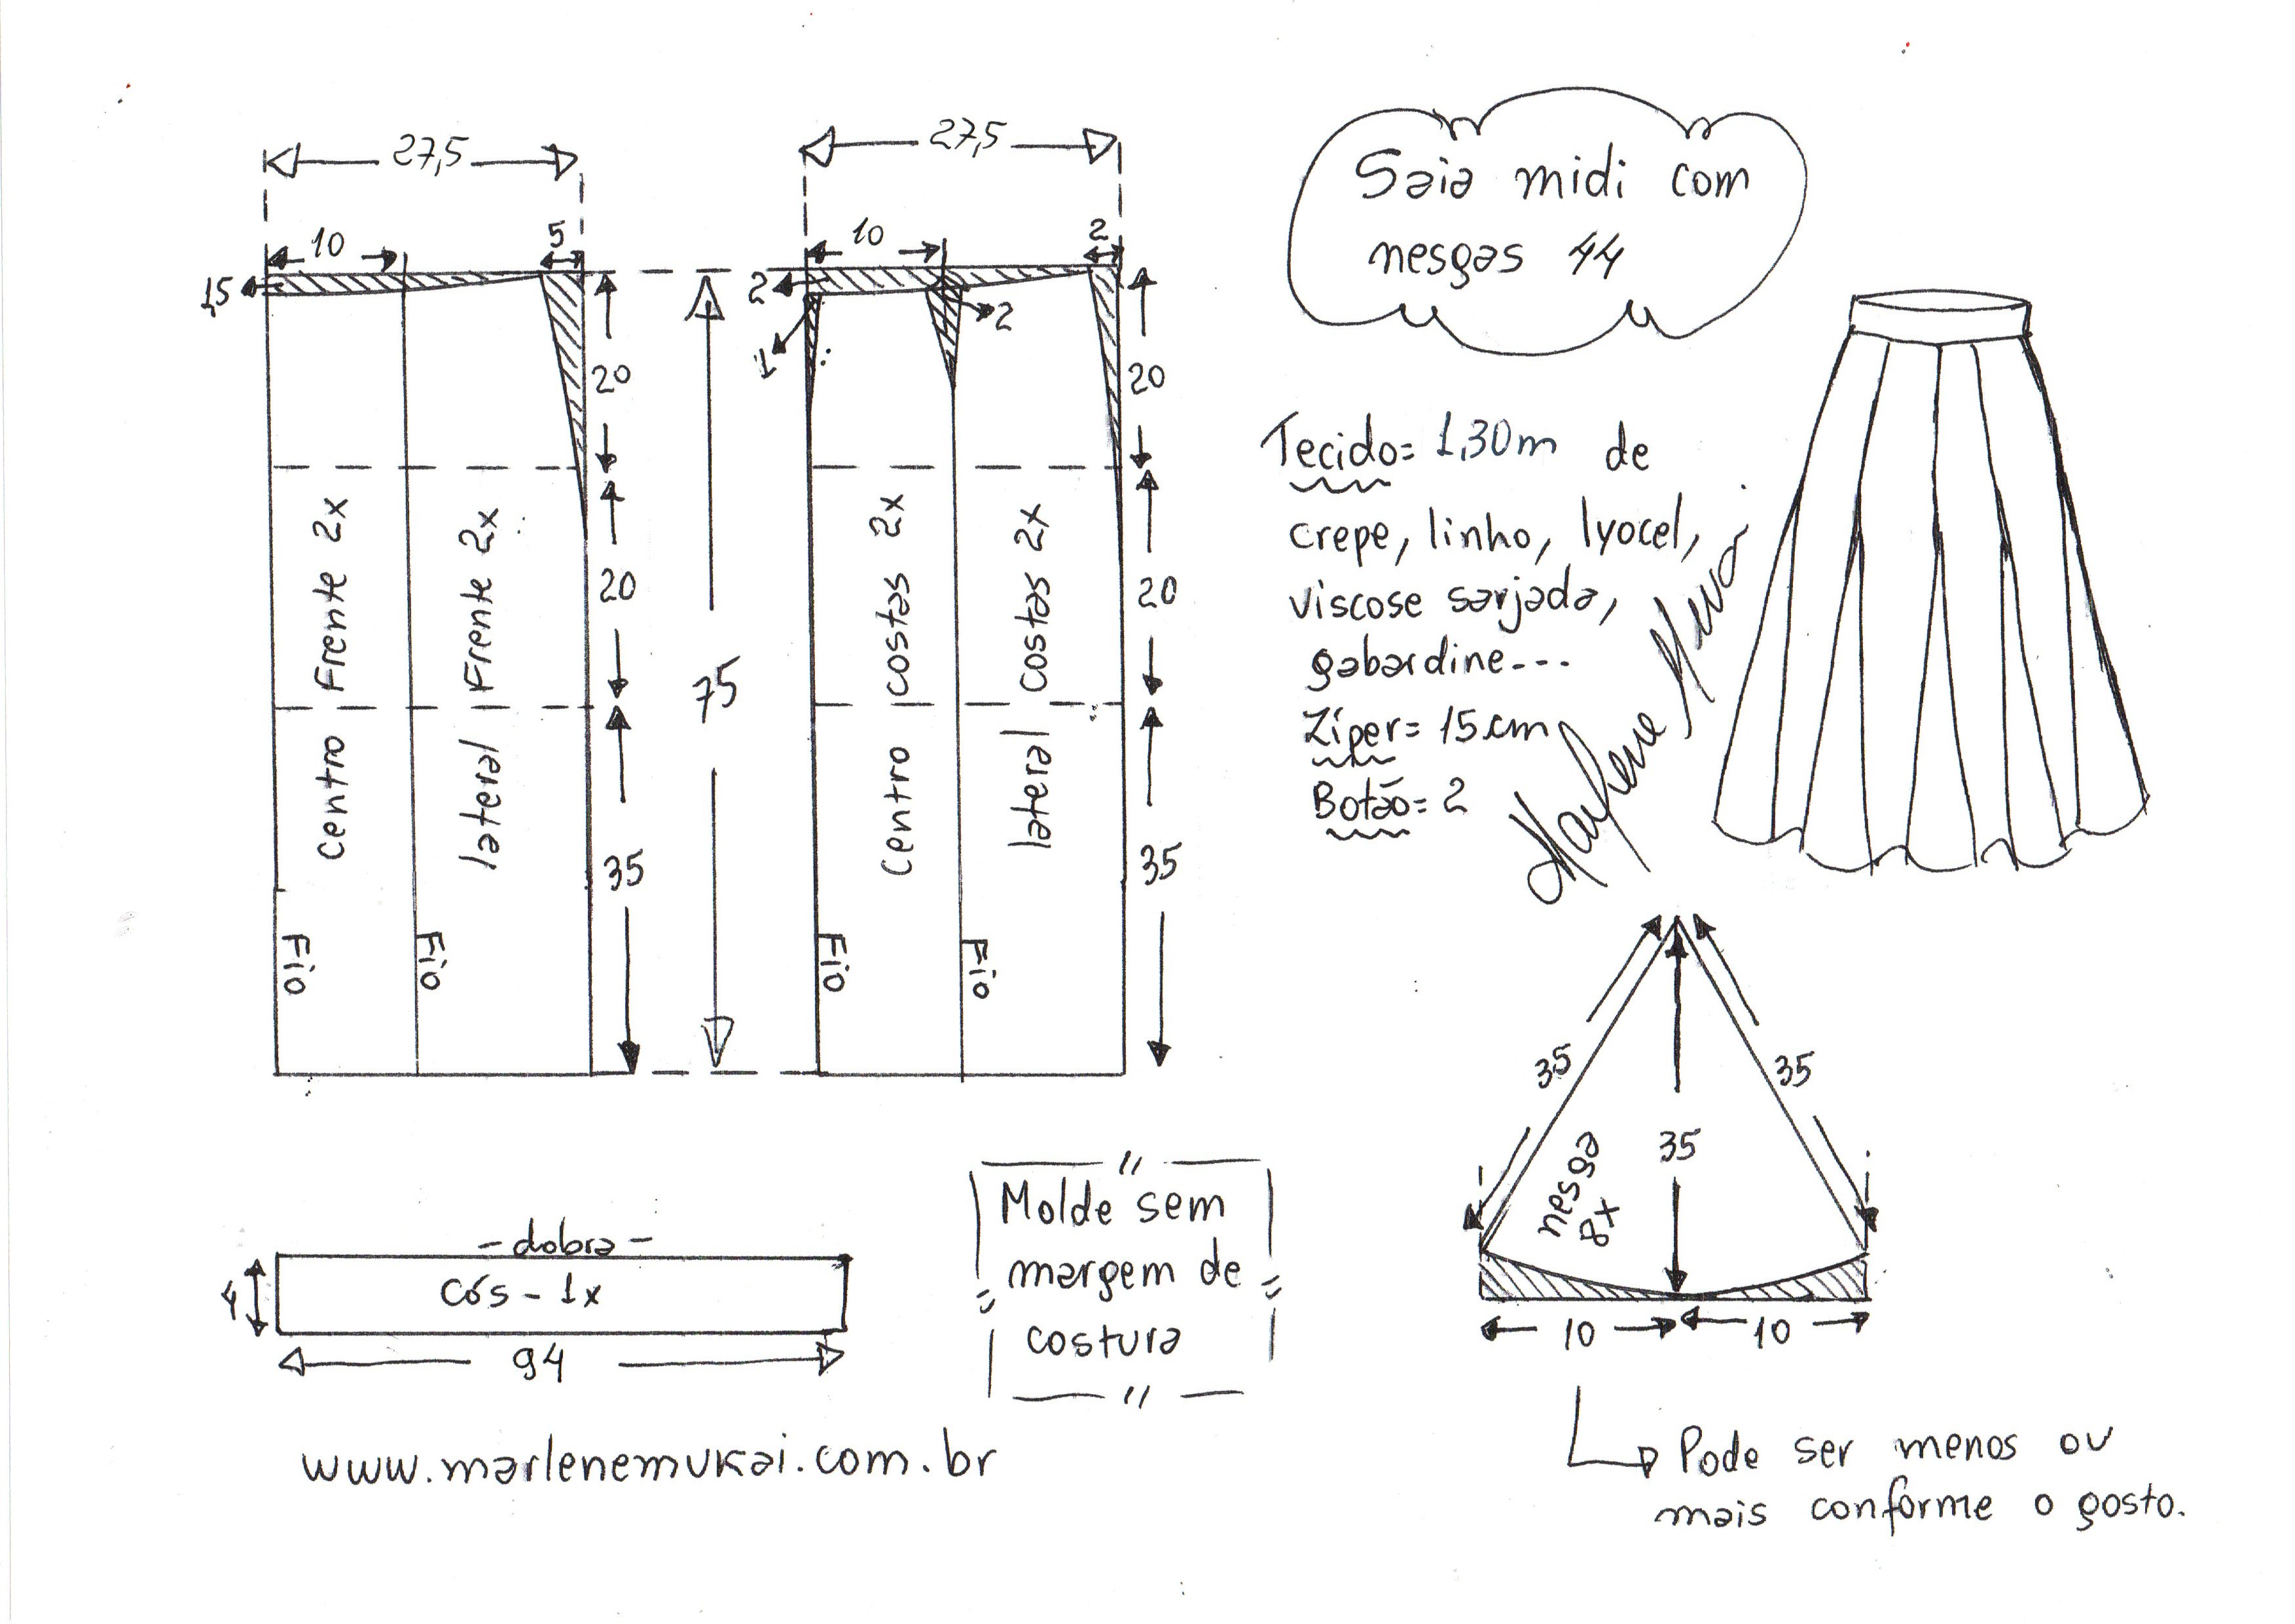 27,5
27,5
10
5
10
2
1,5
2
2
1
20
20
20
20
35
35
75
Centro Frente 2x
lateral Frente 2x
centro costas 2x
lateral costas 2x
Fio
Fio
Fio
Fio
Saia midi com
nesgas 44
Tecido= 1,30m de
crepe, linho, lyocel,
viscose sarjada,
gabardine---
Zíper= 15cm
Botão= 2
Marlene Mukai
35
35
35
nesga
8x
10
10
Pode ser menos ou
mais conforme o gosto.
- dobra -
cós - 1x
4
94
Molde sem
margem de
costura
www.marlenemukai.com.br